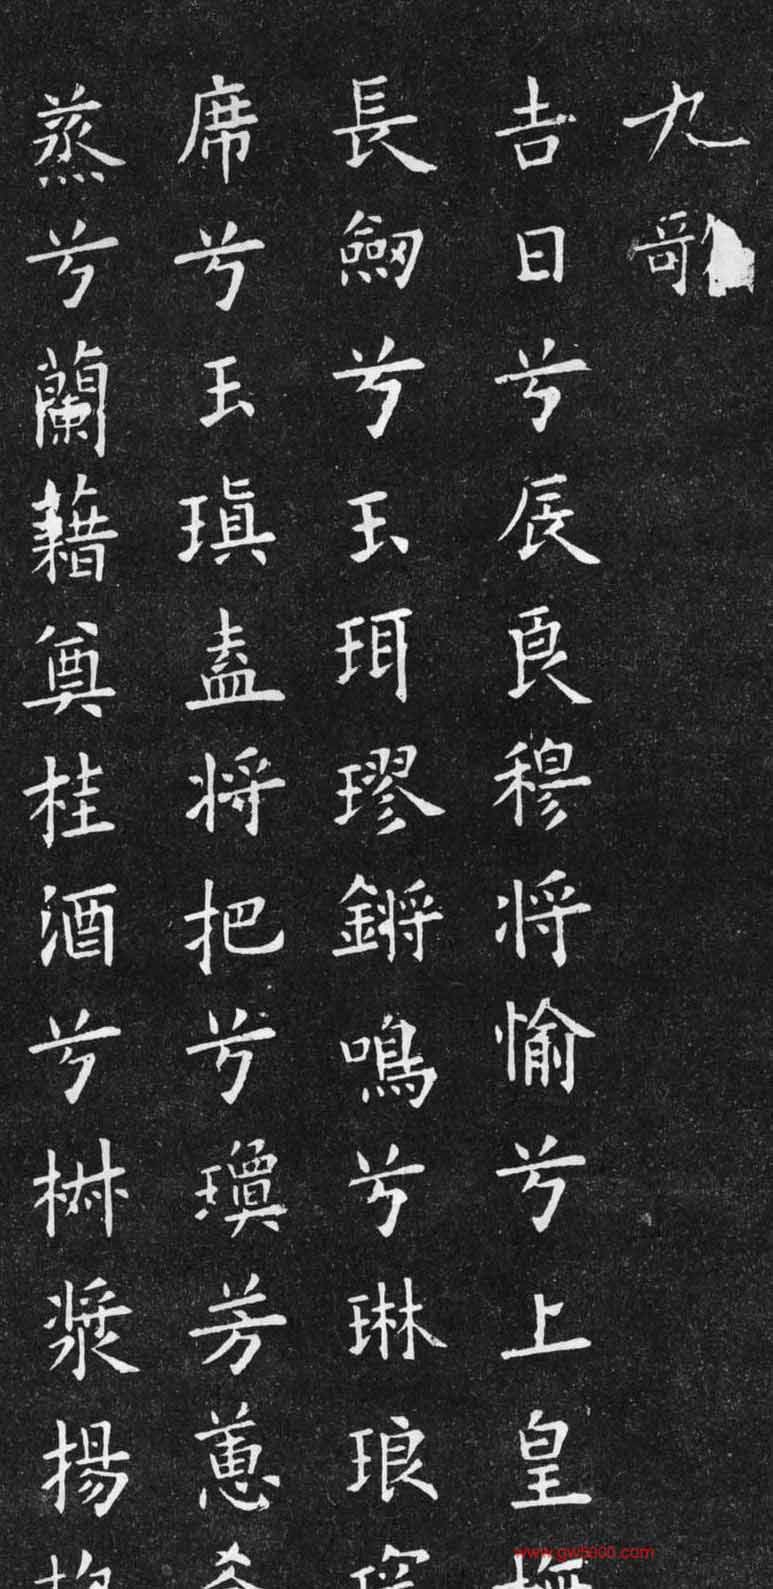 九歌
吉日兮辰良穆将愉兮上皇
長劒兮玉珥璆鏘鳴兮琳琅
席兮玉瑱盍将把兮瓊芳蕙
蒸兮蘭藉奠桂酒兮椒漿揚
www.gw5000.com